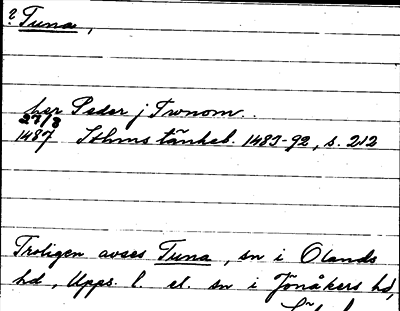 ? Tuna,
her Peder j Twnom.
27/8
1487 Sthms tänkeb. 1483-92, s. 212
Troligen avses Tuna, sn i Olands
hd, Upps. l. el. sn i Jönåkers hd,